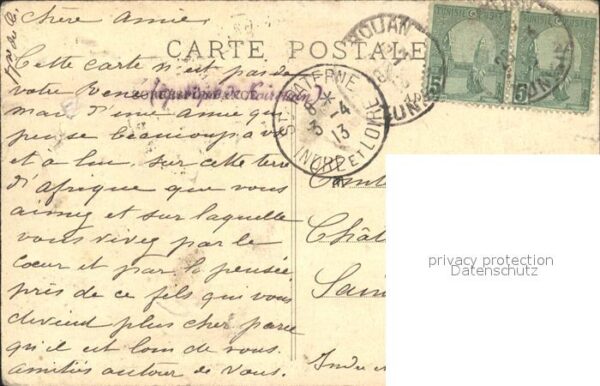 Chère Amie,
CARTE POSTALE
Cette carte n'est pas de
votre
CORRESPONDANCE
mais d'une amie qui
pense beaucoup à vous
et a lui, sur cette terre
d'Afrique que vous
aimez et sur laquelle
vous vivez par le
cœur et par la pensée
près de ce fils qui vous
devient plus cher parce
qu'il est loin de vous.
amitiés autour de vous.
TUNISIE
TUNISIE
5
5
KAIROUAN
TUNISIE
ST PATERNE
8 * -4
3 13
INDRE ET LOIRE
Chât
Sain
Indre e
privacy protection
Datenschutz